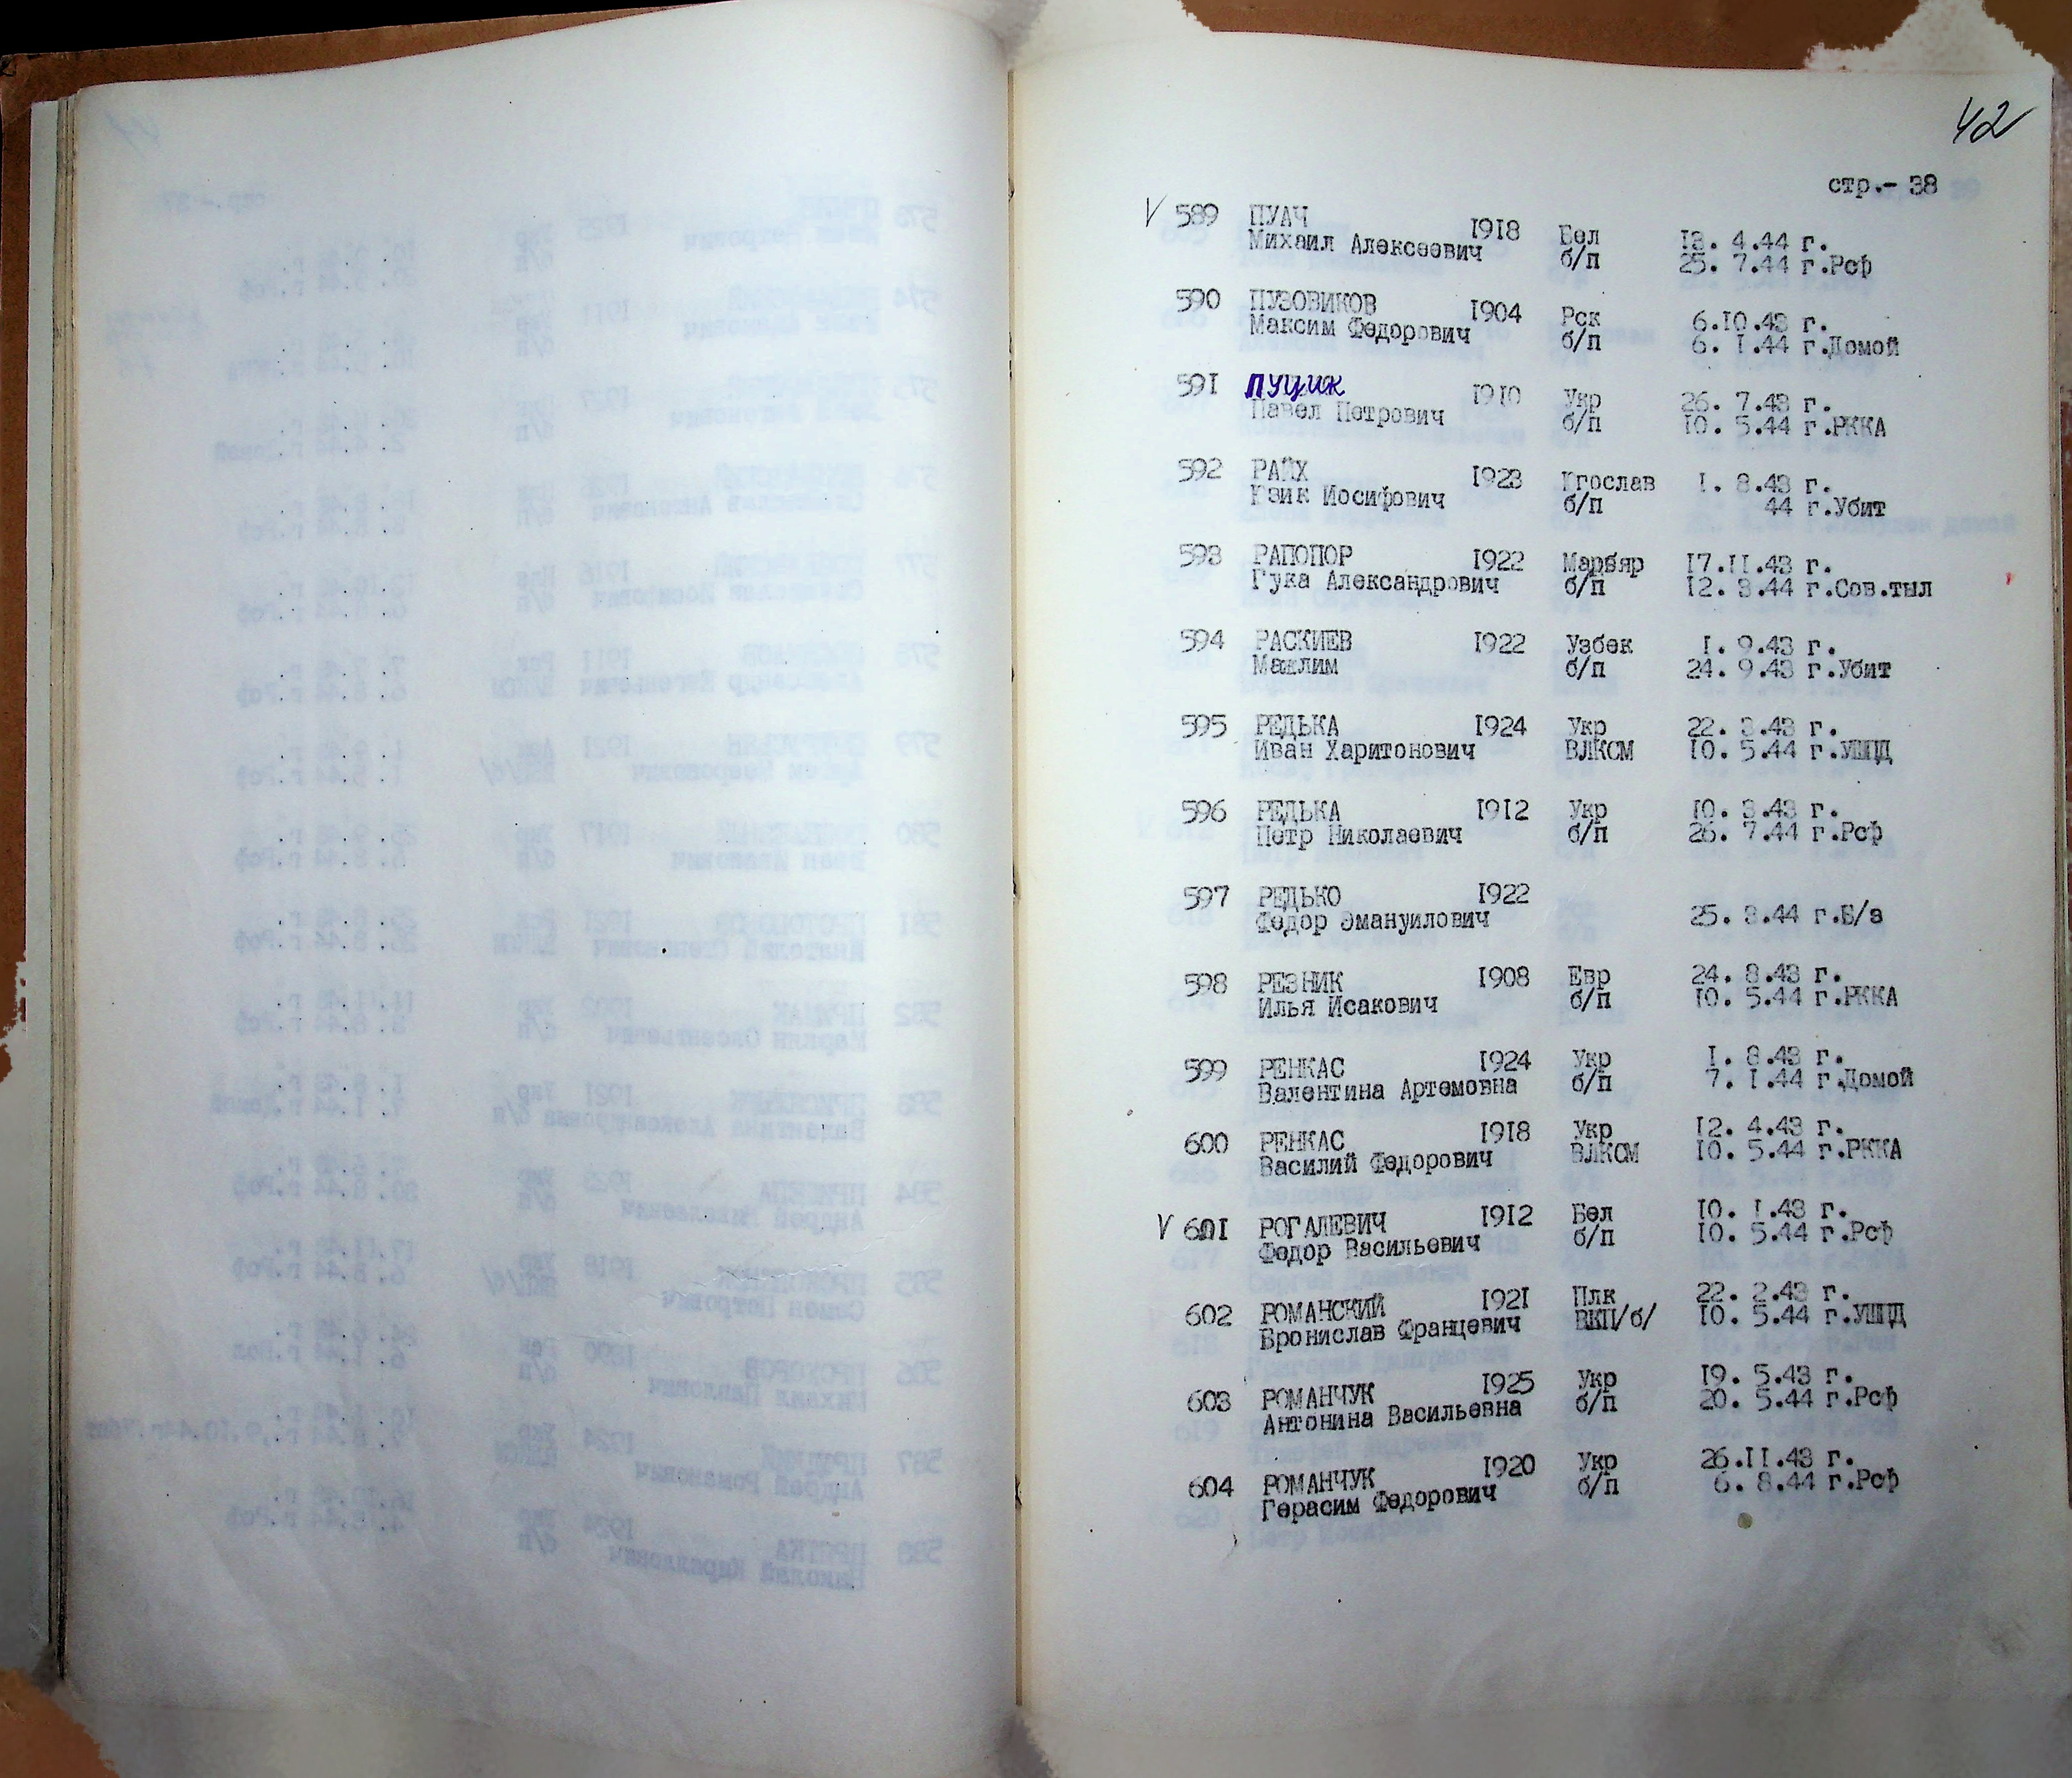 42
стр.- 38
V 589 ПУАЧ 1918 Бел 13. 4.44 г.
Михаил Алексеевич б/п 25. 7.44 г.Рсф
590 ПУЗОВИКОВ 1904 Рск 6.10.43 г.
Максим Федорович б/п 6. 1.44 г.Домой
591 ПУЦИК 1910 Укр 26. 7.43 г.
Павел Петрович б/п 10. 5.44 г.РККА
592 РАЙХ 1923 Югослав 1. 8.43 г.
Иосифович б/п 44 г.Убит
593 РАПОПОР 1922 Марбяр 17.11.43 г.
Гука Александрович б/п 12. 3.44 г.Сов.тыл
594 РАСКИЕВ 1922 Узбек 1. 9.43 г.
Мажлим б/п 24. 9.43 г.Убит
595 РЕДЬКА 1924 Укр 22. 3.43 г.
Иван Харитонович ВЛКСМ 10. 5.44 г.УШПД
596 РЕДЬКА 1912 Укр 10. 3.43 г.
Петр Николаевич б/п 26. 7.44 г.Рсф
597 РЕДЬКО 1922
Федор Эмануилович 25. 3.44 г.Б/з
598 РЕЗНИК 1908 Евр 24. 8.43 г.
Илья Исакович б/п 10. 5.44 г.РККА
599 РЕНКАС 1924 Укр 1. 8.43 г.
Валентина Артемовна б/п 7. 1.44 г.Домой
600 РЕНКАС 1918 Укр 12. 4.43 г.
Василий Федорович ВЛКСМ 10. 5.44 г.РККА
V 601 РОГАЛЕВИЧ 1912 Бел 10. 1.43 г.
Федор Васильевич б/п 10. 5.44 г.Рсф
602 РОМАНСКИЙ 1921 Плк 22. 2.43 г.
Бронислав Францевич ВКП/б/ 10. 5.44 г.УШПД
603 РОМАНЧУК 1925 Укр 19. 5.43 г.
Антонина Васильевна б/п 20. 5.44 г.Рсф
604 РОМАНЧУК 1920 Укр 26.11.43 г.
Герасим Федорович б/п 6. 8.44 г.Рсф